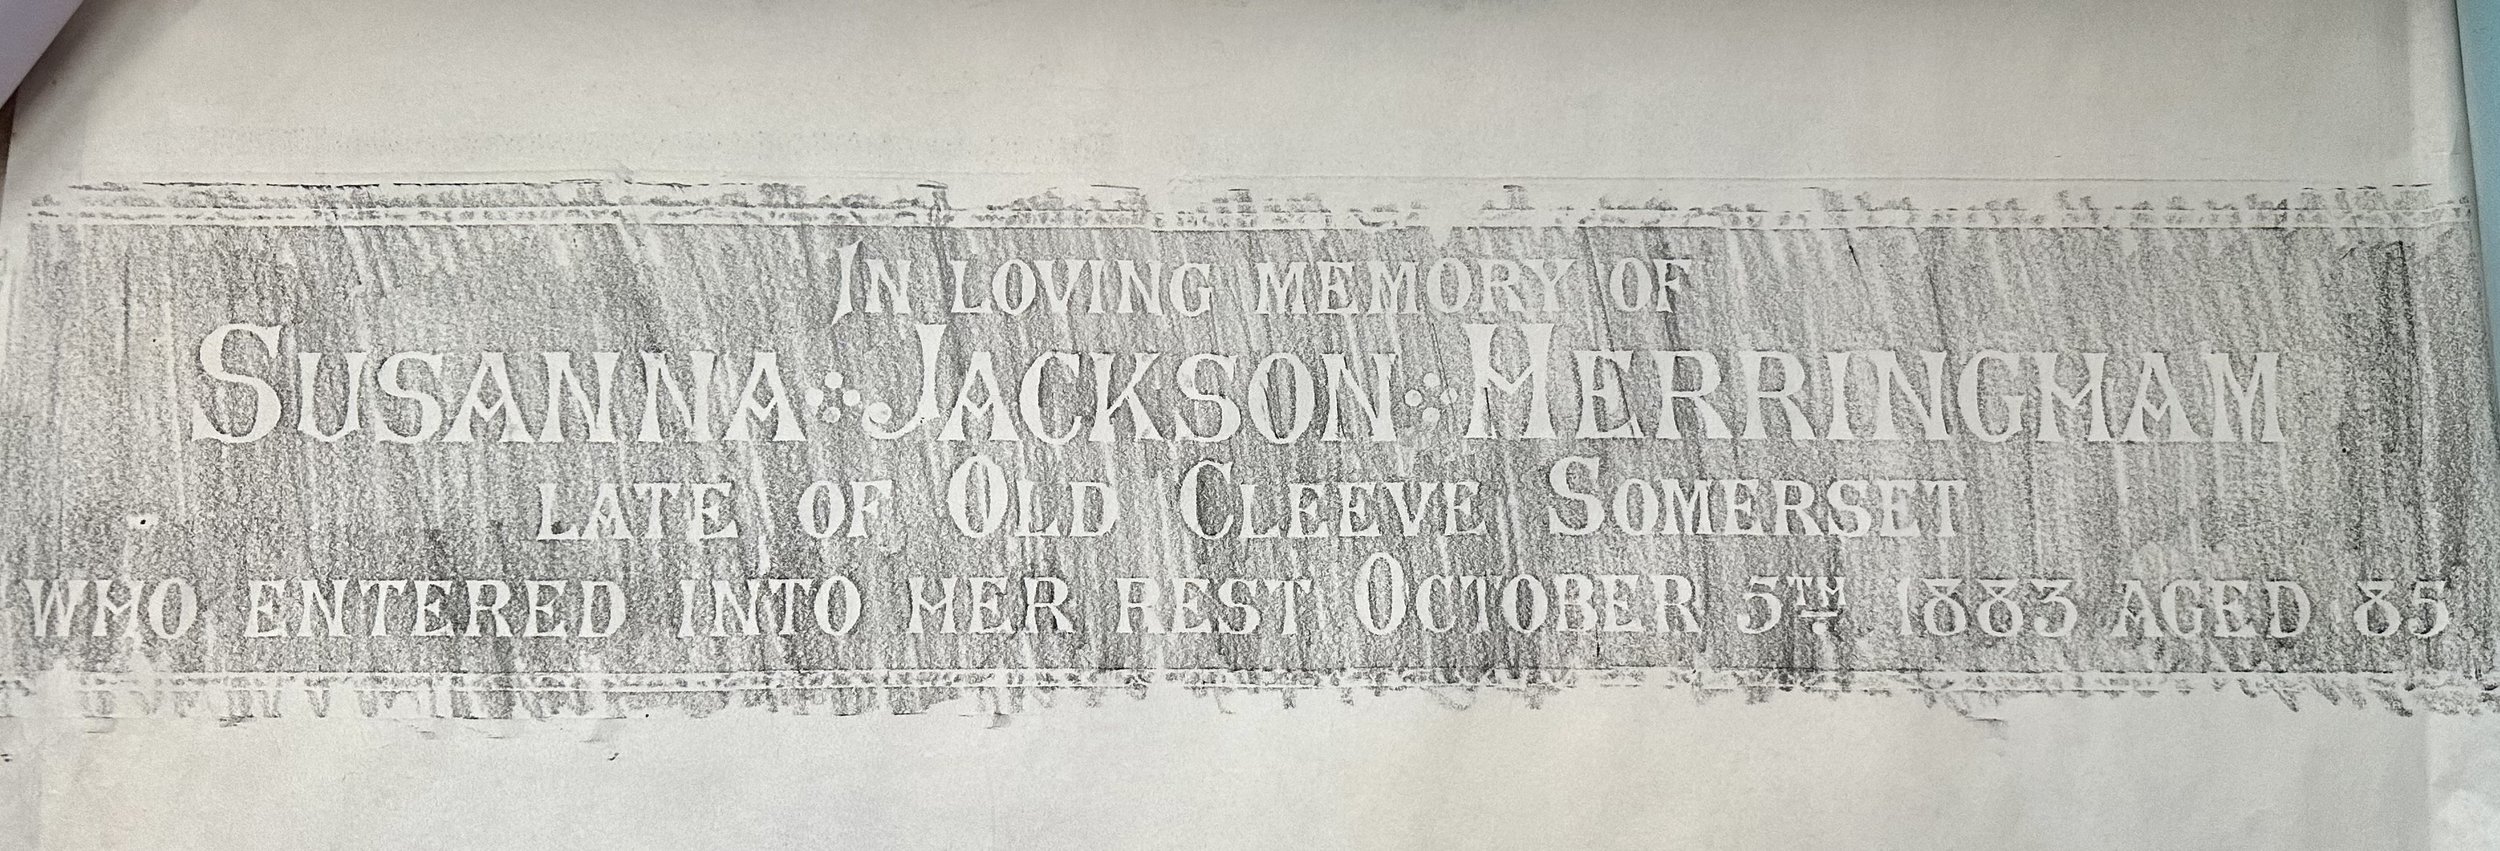 In loving memory of
Susanna Jackson Herringham
late of Old Cleeve Somerset
who entered into her rest October 5th 1883 aged 85